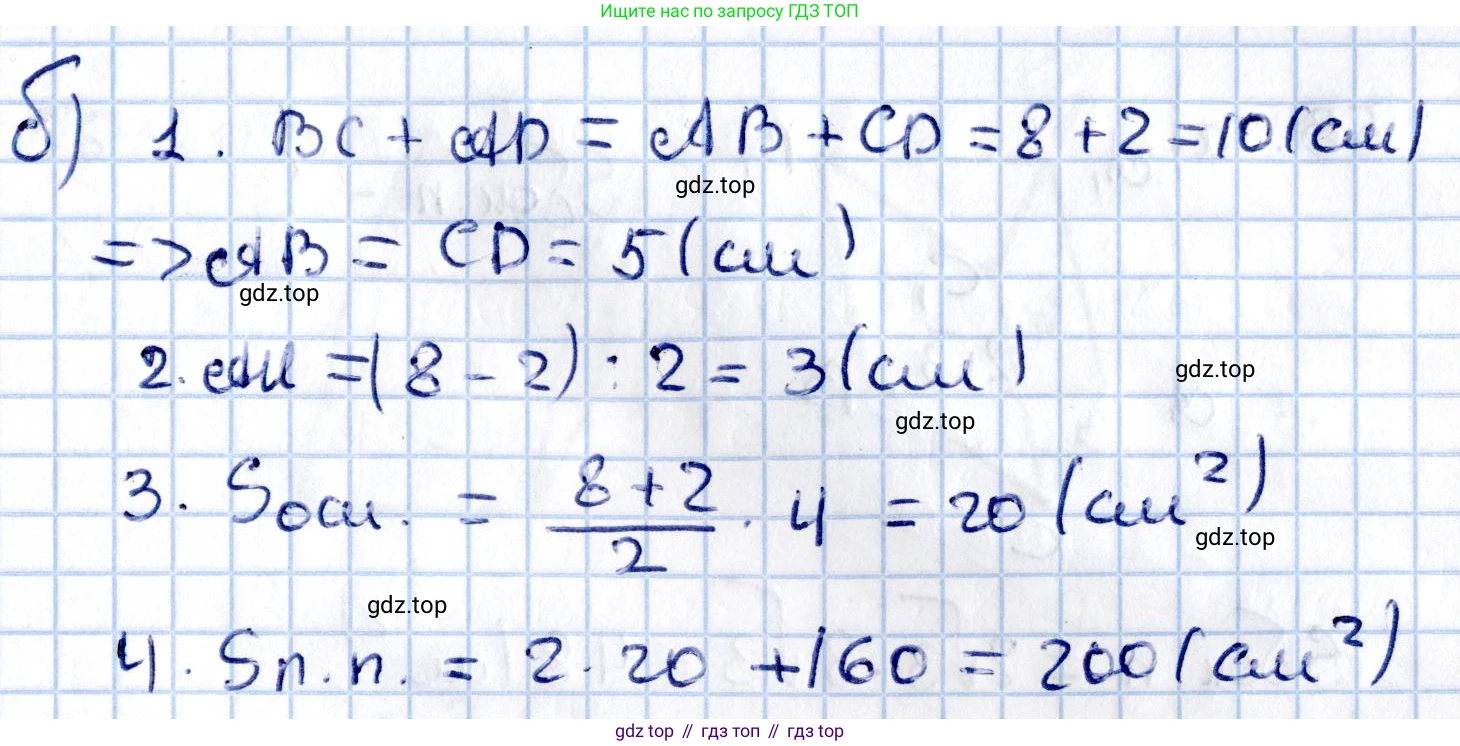 Ищите нас по запросу ГДЗ ТОП
б) 1. BC + AD = AB + CD = 8 + 2 = 10 (см)
gdz.top
=> AB = CD = 5 (см)
gdz.top
2. AH = (8 - 2) : 2 = 3 (см)
gdz.top
gdz.top
3. Sосн. = \frac{8+2}{2} · 4 = 20 (см²)
gdz.top
gdz.top
4. Sп.п. = 2 · 20 + 160 = 200 (см²)
gdz.top // гдз топ // gdz.top